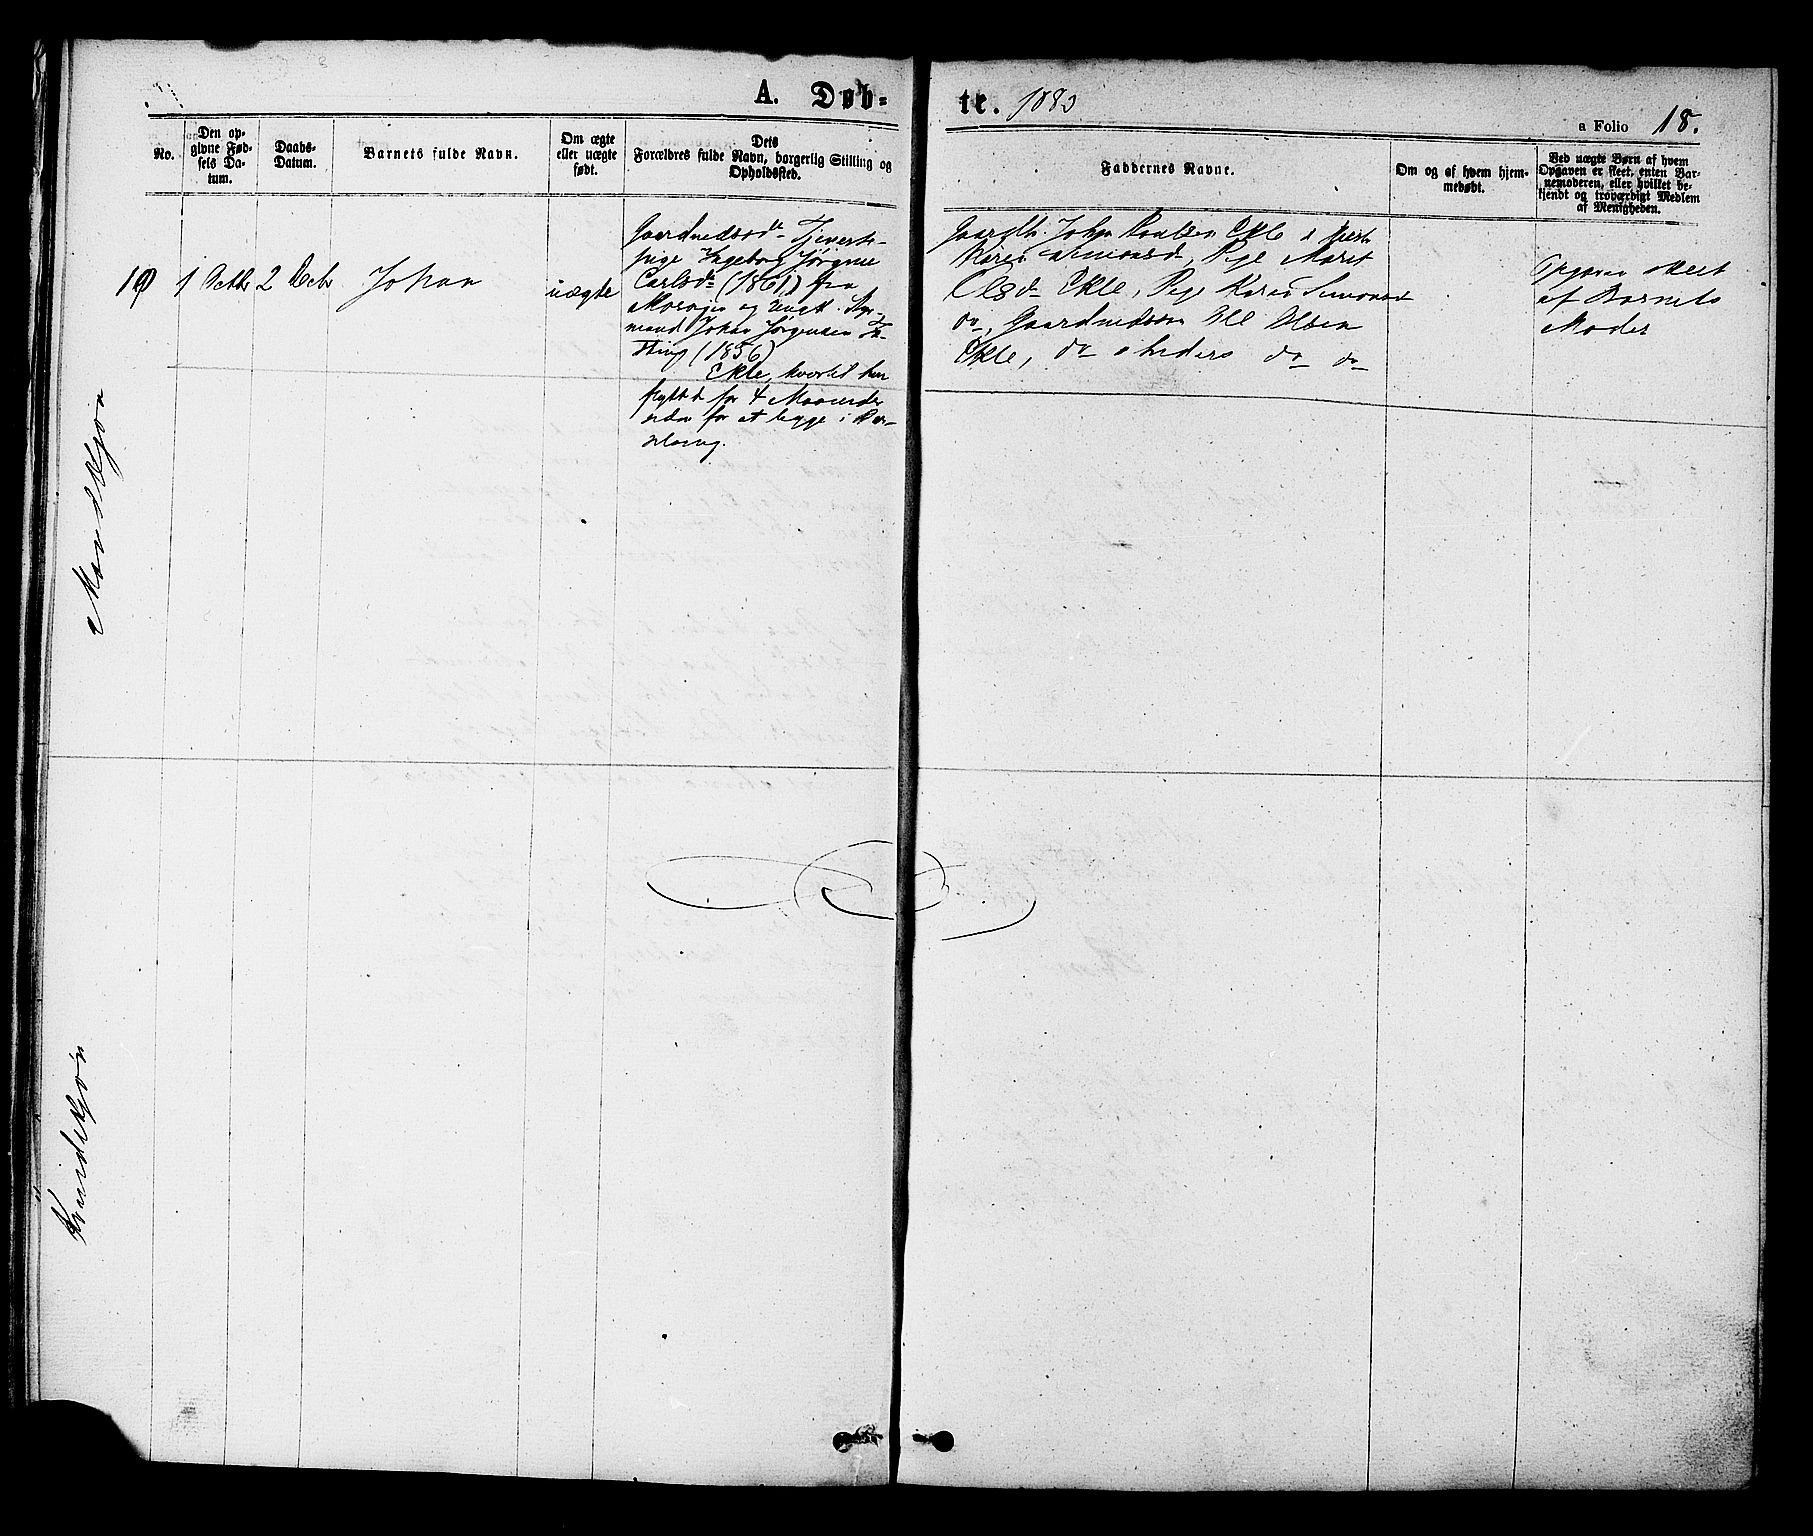 A. Døb=
te. 1883
a Folio 18.
No.
Den op-
givne Fød-
sels Da-
tum.
Daabs-
Datum.
Barnets fulde Navn.
Om ægte
eller uægte
født.
Dets
Forældres fulde Navn, borgerlig Stilling og
Opholdssted.
Faddernes Navne.
Om og af hvem hjem-
medøbt.
Ved uægte Børn af hvem
Opgaven er skeet, enten Bar-
nemoderen, eller hvilket be-
kjendt og troværdigt Medlem
af Menigheden.
Mandkjøn
10
1
2
Johan
uægte
Pige Ingeborg Jørgine
Carlsd. (1861) fra
og Ungk.
mand Johan Jørgensen
(1856)
Ekle, hvortil hun
flyttet for 4 Maaneder
siden for at ligge i Bar-
selseng.
Gaardbr. John Ekle
Karen Pige Marit
Olsd. Ekle, Pige Karen Simonsd.
do, Ole Olsen
Ekle, do Anders do do
Opgaven skeet
af Barnets
Moder
Kvindekjøn